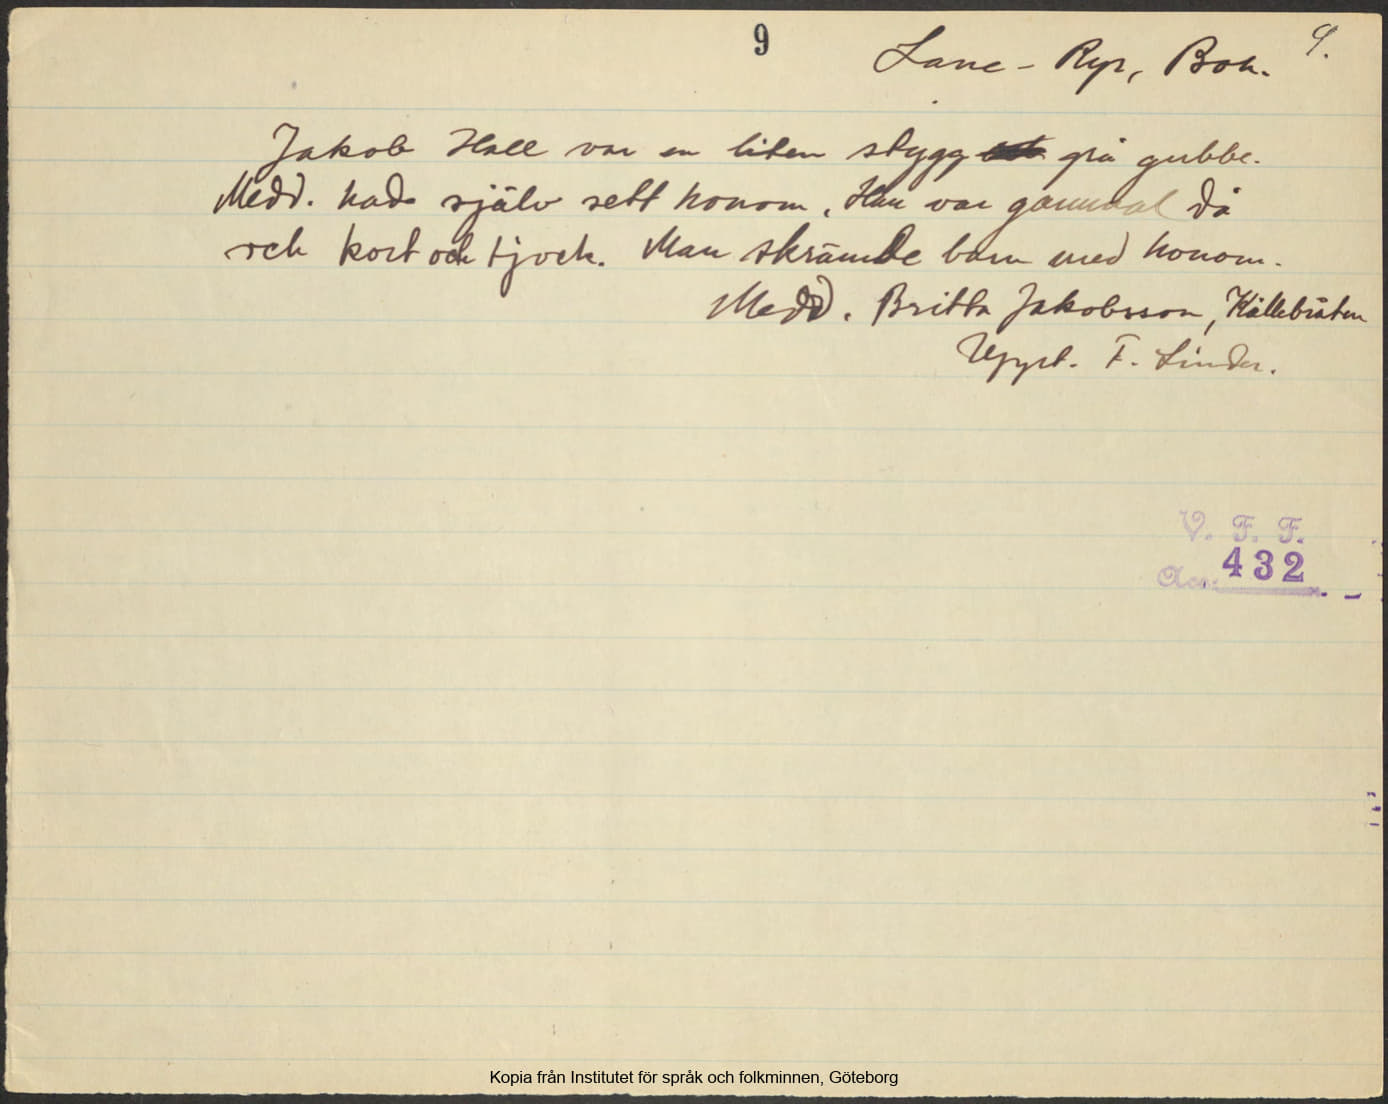 9
Lane-Ryr, Boh. 9.
Jakob Hall var en liten stygg grå gubbe.
Medd. hade själv sett honom. Han var gammal då
och kort och tjock. Man skrämde barn med honom.
Medd. Britta Jakobsson, Källebråten
Uppt. F. Linder.
V. F. F.
Acc. 432
Kopia från Institutet för språk och folkminnen, Göteborg